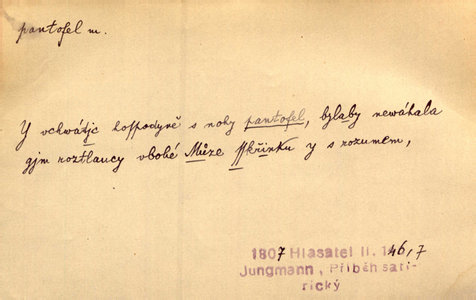 pantofel m.
Y vchwátjc hospodyně s nohy pantofel, bylaby newáhala
gjm roztlaucy vbohé Můze skřinku y s rozumem,
1807 Hlasatel II. 146,7
Jungmann, Příběh sati-
rický